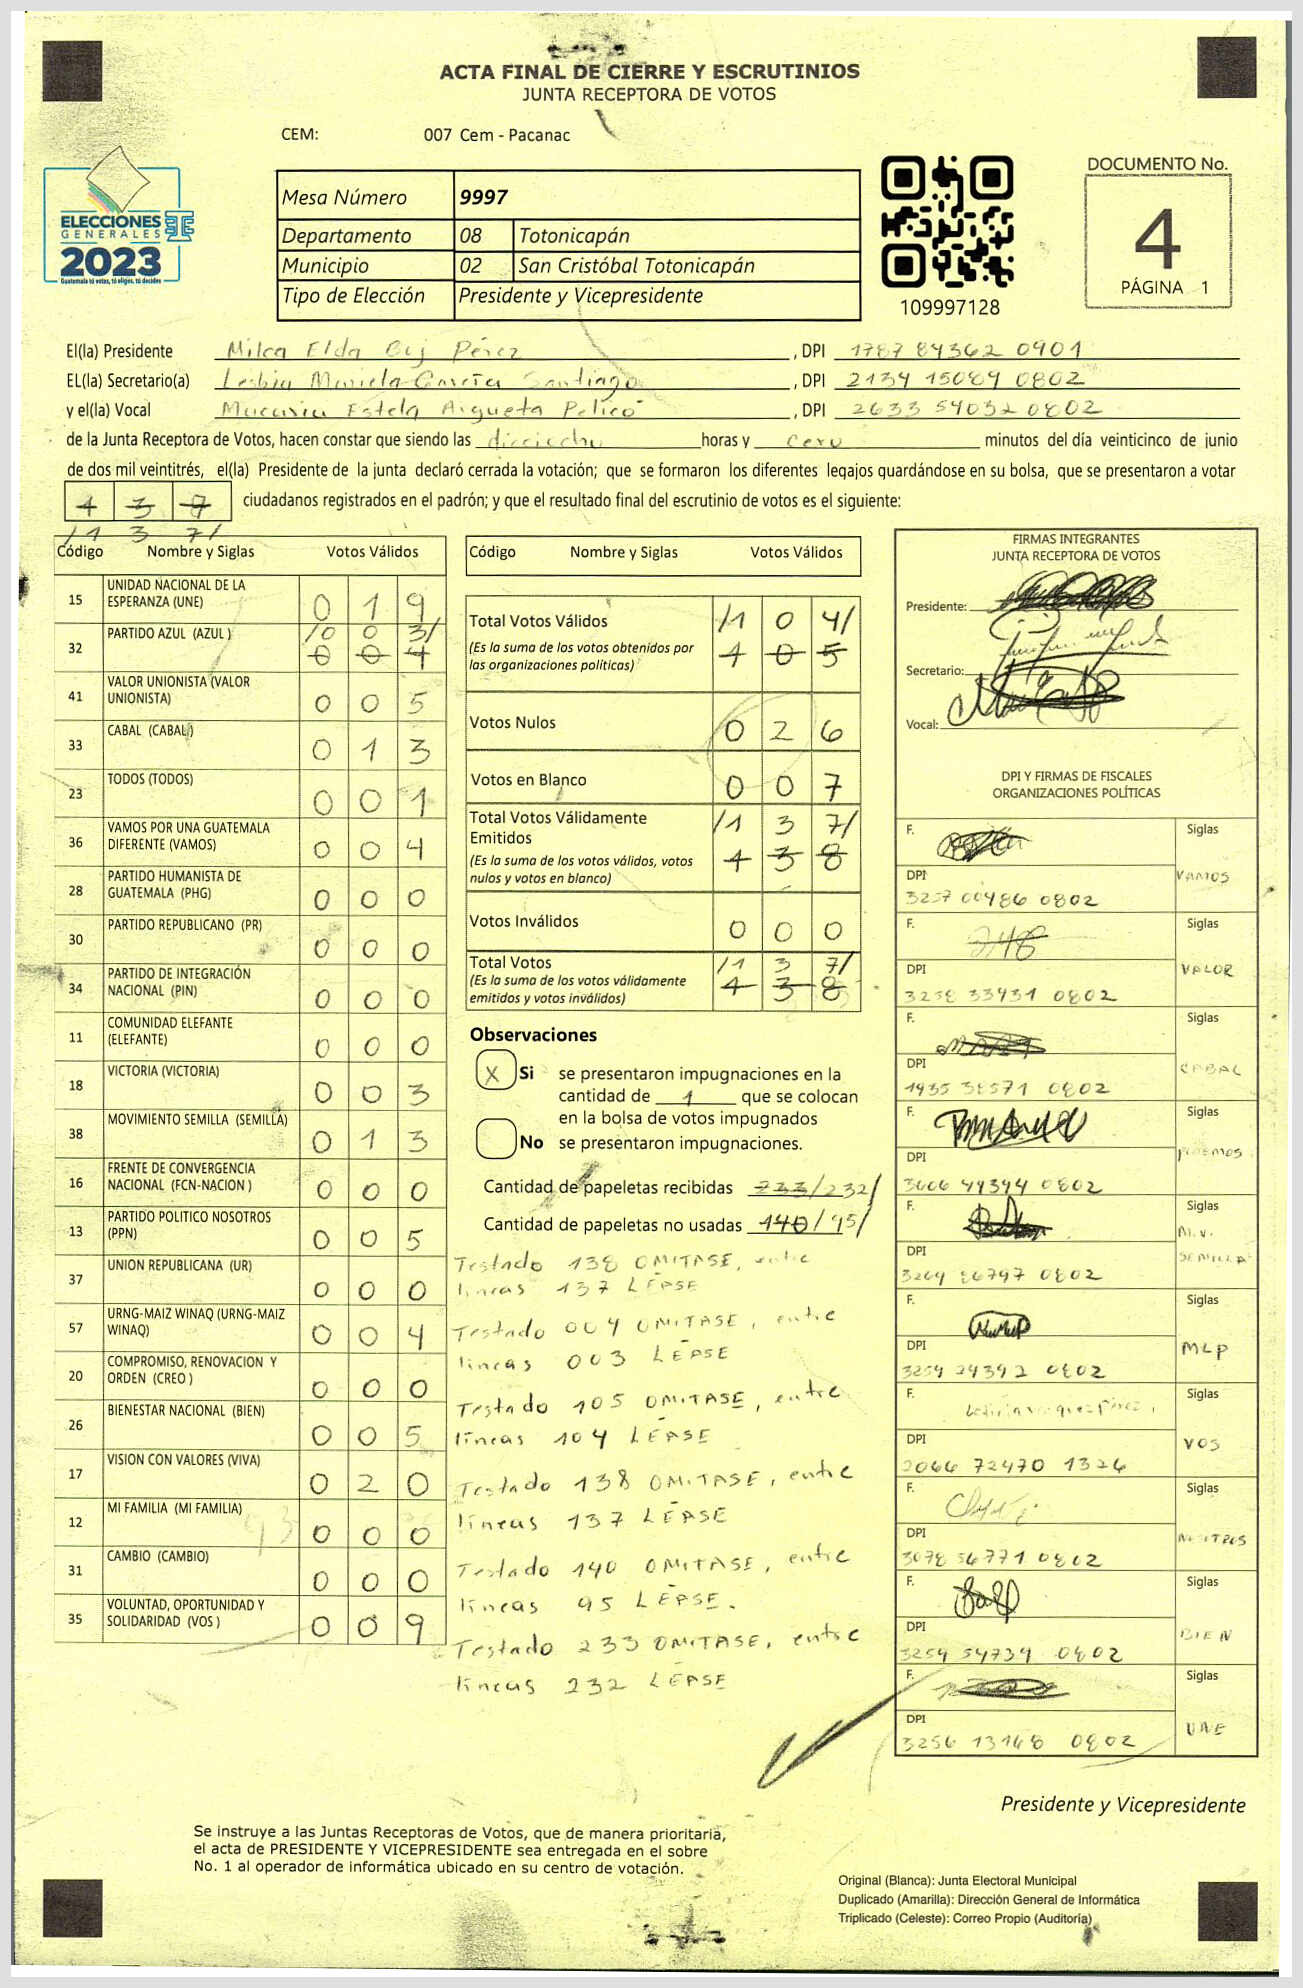 ACTA FINAL DE CIERRE Y ESCRUTINIOS
JUNTA RECEPTORA DE VOTOS
CEM: 007 Cem - Pacanac
ELECCIONES
GENERALES
2023
Guatemala tú votas, tú eliges, tú decides
Mesa Número 9997
Departamento 08 Totonicapán
Municipio 02 San Cristóbal Totonicapán
Tipo de Elección Presidente y Vicepresidente
109997128
DOCUMENTO No.
4
PÁGINA 1
El(la) Presidente Milca Elda Pérez , DPI 1787 84362 0901
EL(la) Secretario(a) Lesbia Mariela García Santiago , DPI 2134 15089 0802
y el(la) Vocal Macaria Estela Argueta Pelicó , DPI 2633 54032 0802
de la Junta Receptora de Votos, hacen constar que siendo las dieciocho horas y cero minutos del día veinticinco de junio
de dos mil veintitrés, el(la) Presidente de la junta declaró cerrada la votación; que se formaron los diferentes legajos guardándose en su bolsa, que se presentaron a votar
ciudadanos registrados en el padrón; y que el resultado final del escrutinio de votos es el siguiente:
/1 3 7/
Código Nombre y Siglas Votos Válidos
15 UNIDAD NACIONAL DE LA
ESPERANZA (UNE) 0 1 9
32 PARTIDO AZUL (AZUL ) /0 0 3/
0 0 4
41 VALOR UNIONISTA (VALOR
UNIONISTA) 0 0 5
33 CABAL (CABAL) 0 1 3
23 TODOS (TODOS) 0 0 1
36 VAMOS POR UNA GUATEMALA
DIFERENTE (VAMOS) 0 0 4
28 PARTIDO HUMANISTA DE
GUATEMALA (PHG) 0 0 0
30 PARTIDO REPUBLICANO (PR) 0 0 0
34 PARTIDO DE INTEGRACIÓN
NACIONAL (PIN) 0 0 0
11 COMUNIDAD ELEFANTE
(ELEFANTE) 0 0 0
18 VICTORIA (VICTORIA) 0 0 3
38 MOVIMIENTO SEMILLA (SEMILLA) 0 1 3
16 FRENTE DE CONVERGENCIA
NACIONAL (FCN-NACION ) 0 0 0
13 PARTIDO POLITICO NOSOTROS
(PPN) 0 0 5
37 UNION REPUBLICANA (UR) 0 0 0
57 URNG-MAIZ WINAQ (URNG-MAIZ
WINAQ) 0 0 4
20 COMPROMISO, RENOVACION Y
ORDEN (CREO ) 0 0 0
26 BIENESTAR NACIONAL (BIEN) 0 0 5
17 VISION CON VALORES (VIVA) 0 2 0
12 MI FAMILIA (MI FAMILIA) 0 0 0
31 CAMBIO (CAMBIO) 0 0 0
35 VOLUNTAD, OPORTUNIDAD Y
SOLIDARIDAD (VOS ) 0 0 9
Código Nombre y Siglas Votos Válidos
Total Votos Válidos /1 0 4/
(Es la suma de los votos obtenidos por
las organizaciones políticas) 1 0 5
Votos Nulos 0 2 6
Votos en Blanco 0 0 7
Total Votos Válidamente
Emitidos /1 3 7/
(Es la suma de los votos válidos, votos
nulos y votos en blanco) 1 3 8
Votos Inválidos 0 0 0
Total Votos /1 3 7/
(Es la suma de los votos válidamente
emitidos y votos inválidos) 1 3 8
Observaciones
X Si se presentaron impugnaciones en la
cantidad de 1 que se colocan
en la bolsa de votos impugnados
No se presentaron impugnaciones.
Cantidad de papeletas recibidas 233/232/
Cantidad de papeletas no usadas 140/95/
Testado 138 OMITASE, entre
líneas 137 LÉASE
Testado 004 OMITASE, entre
líneas 003 LÉASE
Testado 105 OMITASE, entre
líneas 104 LÉASE
Testado 138 OMITASE, entre
líneas 137 LÉASE
Testado 140 OMITASE, entre
líneas 95 LÉASE.
Testado 233 OMITASE, entre
líneas 232 LÉASE
FIRMAS INTEGRANTES
JUNTA RECEPTORA DE VOTOS
Presidente:
Secretario:
Vocal:
DPI Y FIRMAS DE FISCALES
ORGANIZACIONES POLÍTICAS
F. Siglas
DPI VAMOS
3257 00486 0802
F. Siglas
DPI VALOR
3258 33431 0802
F. Siglas
DPI CABAL
1935 38571 0802
F. Siglas
DPI PODEMOS
3606 44394 0802
F. Siglas
M.V.
DPI SEMILLA
3269 86797 0802
F. Siglas
DPI MLP
3254 24392 0802
F. Siglas
DPI VOS
2066 72470 1326
F. Siglas
DPI NOSOTROS
3078 56771 0802
F. Siglas
DPI BIEN
3254 54734 0802
F. Siglas
DPI UNE
3256 13168 0802
Presidente y Vicepresidente
Se instruye a las Juntas Receptoras de Votos, que de manera prioritaria,
el acta de PRESIDENTE Y VICEPRESIDENTE sea entregada en el sobre
No. 1 al operador de informática ubicado en su centro de votación.
Original (Blanca): Junta Electoral Municipal
Duplicado (Amarilla): Dirección General de Informática
Triplicado (Celeste): Correo Propio (Auditoría)